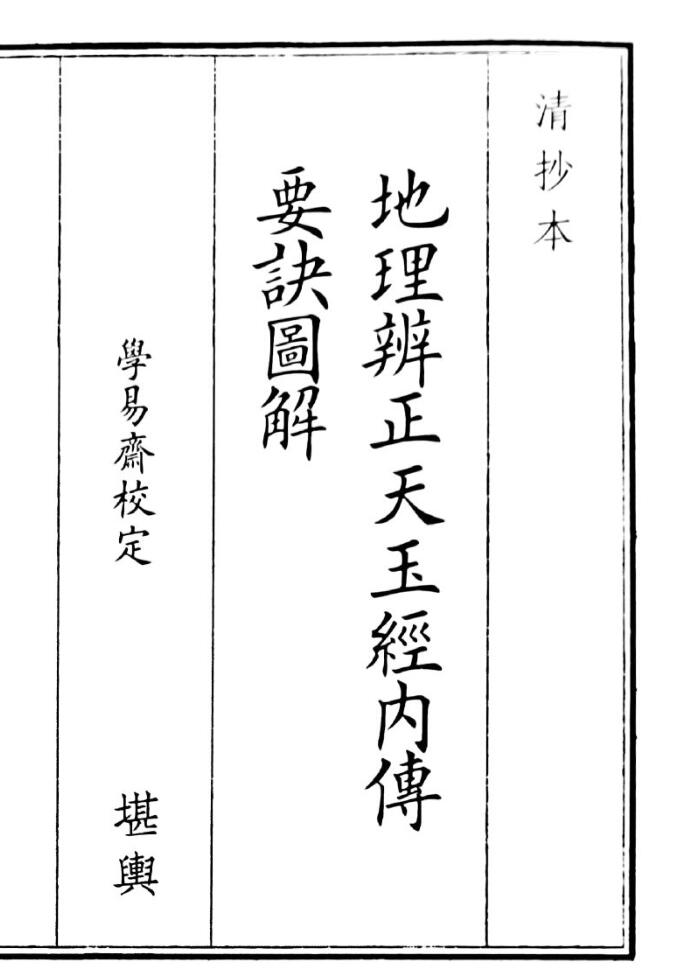 清抄本
地理辨正天玉經内傳
要訣圖解
學易齋校定
堪輿